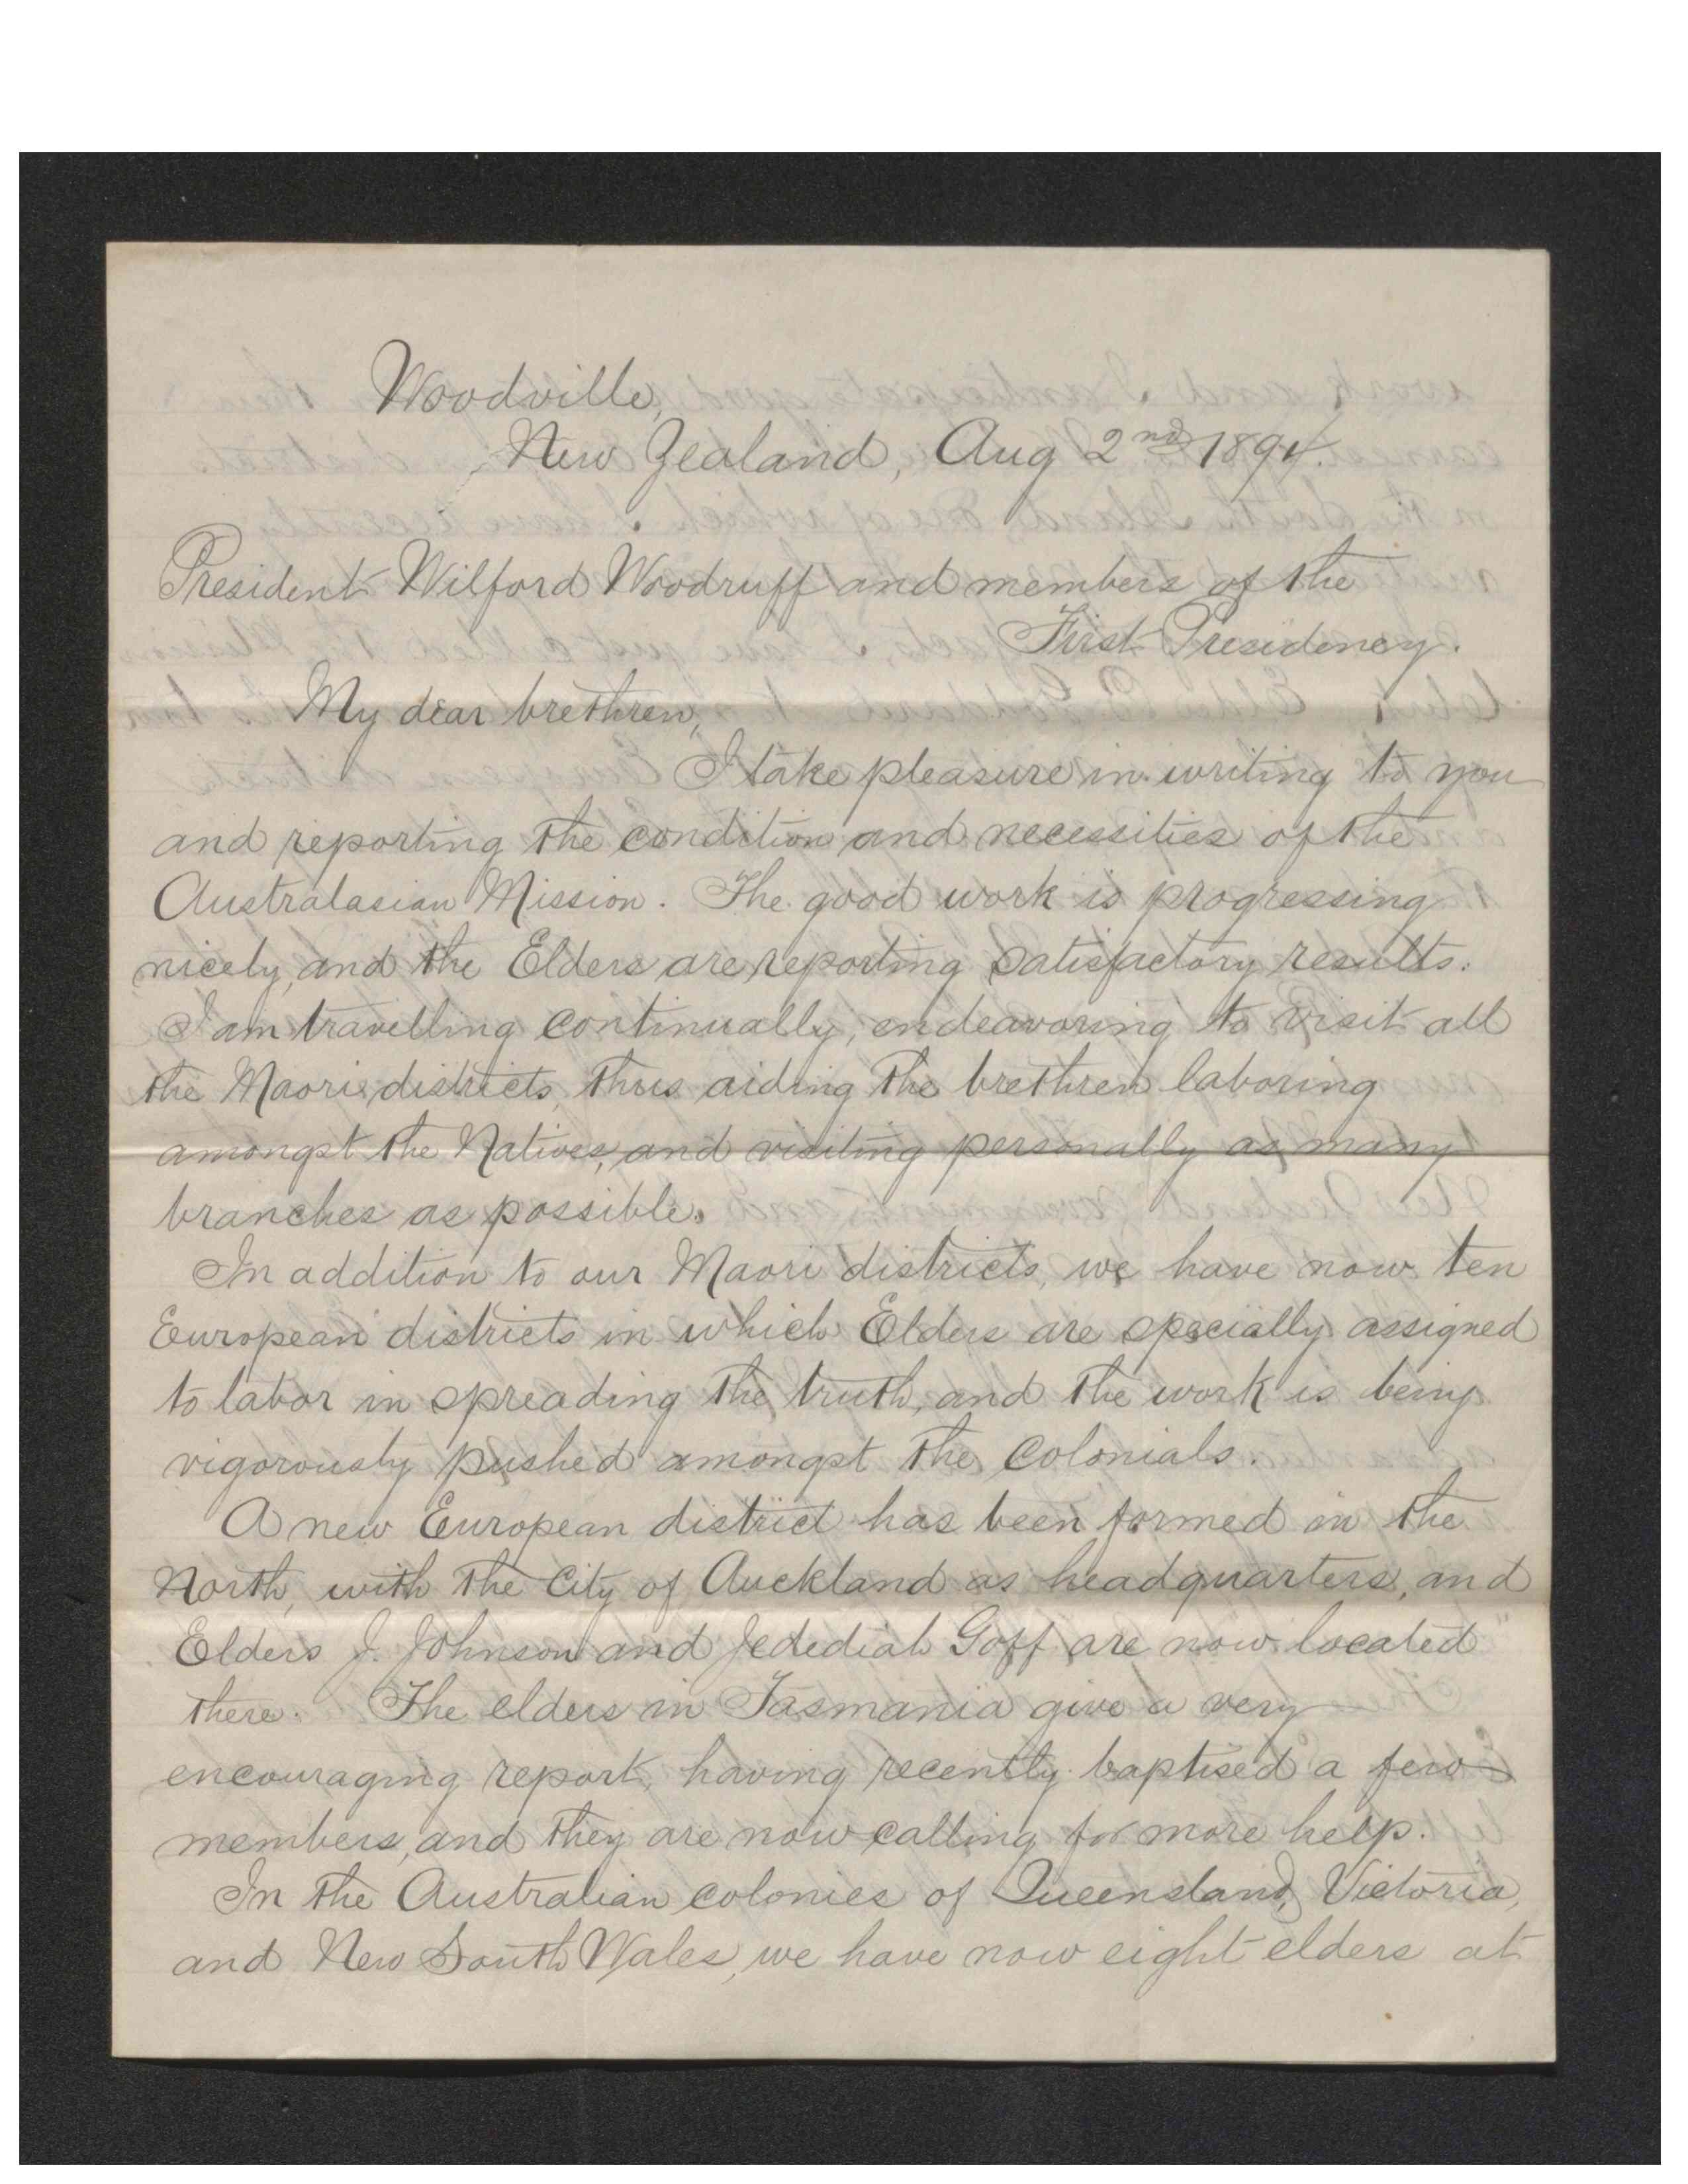 Woodville,
New Zealand, Aug 2nd 1894.
President Wilford Woodruff and members of the
First Presidency.
My dear brethren,
I take pleasure in writing to you
and reporting the condition and necessities of the
Australasian Mission. The good work is progressing
nicely, and the Elders are reporting satisfactory results.
I am travelling continually, endeavoring to visit all
the Maori districts, thus aiding the brethren laboring
amongst the Natives, and visiting personally as many
branches as possible.
In addition to our Maori districts, we have now ten
European districts in which Elders are specially assigned
to labor in spreading the truth, and the work is being
vigorously pushed amongst the Colonials.
A new European district has been formed in the
North, with the City of Auckland as headquarters, and
Elders J. Johnson and Jedediah Goff are now located
there. The elders in Tasmania give a very
encouraging report, having recently baptised a few
members, and they are now calling for more help.
In the Australian colonies of Queensland, Victoria,
and New South Wales, we have now eight elders at